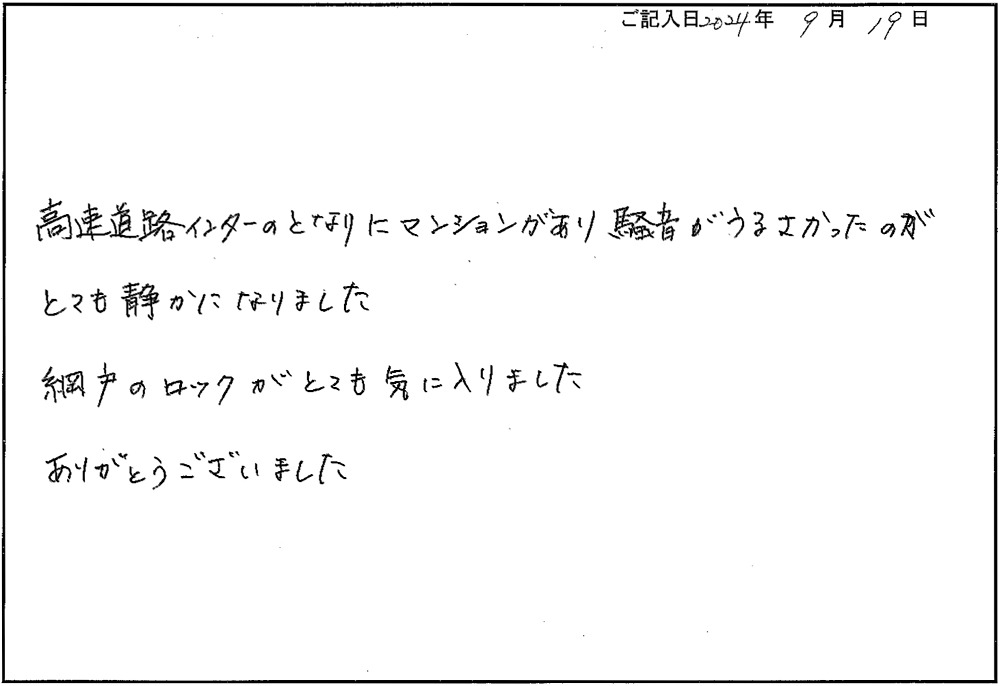 ご記入日2024年 9月 19日
高速道路インターのとなりにマンションがあり騒音がうるさかったのが
とても静かになりました
網戸のロックがとても気に入りました
ありがとうございました